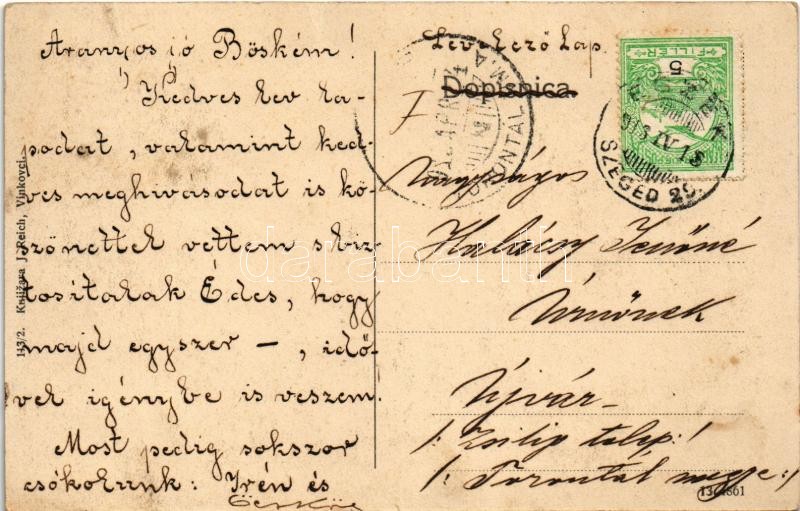 Aranyos jó Böském!
Kedves lev la-
podat, valamint ked-
ves meghivásodat is kö-
szönettel vettem s biz-
tositalak Édes, hogy
majd egyszer –, idő-
vel igénybe is veszem!
Most pedig sokszor
csókolunk: Irén és
113/2. Knjižara J. Reich, Vinkovci.
Levelező Lap.
Dopisnica.
FILLÉR
5
SZEGED
TORONTÁL
Nagyságos
Halácsy Jenőné
Úrnőnek
Újvár
/: Zsilip telep :/
/: Torontál megye :/
darabanth